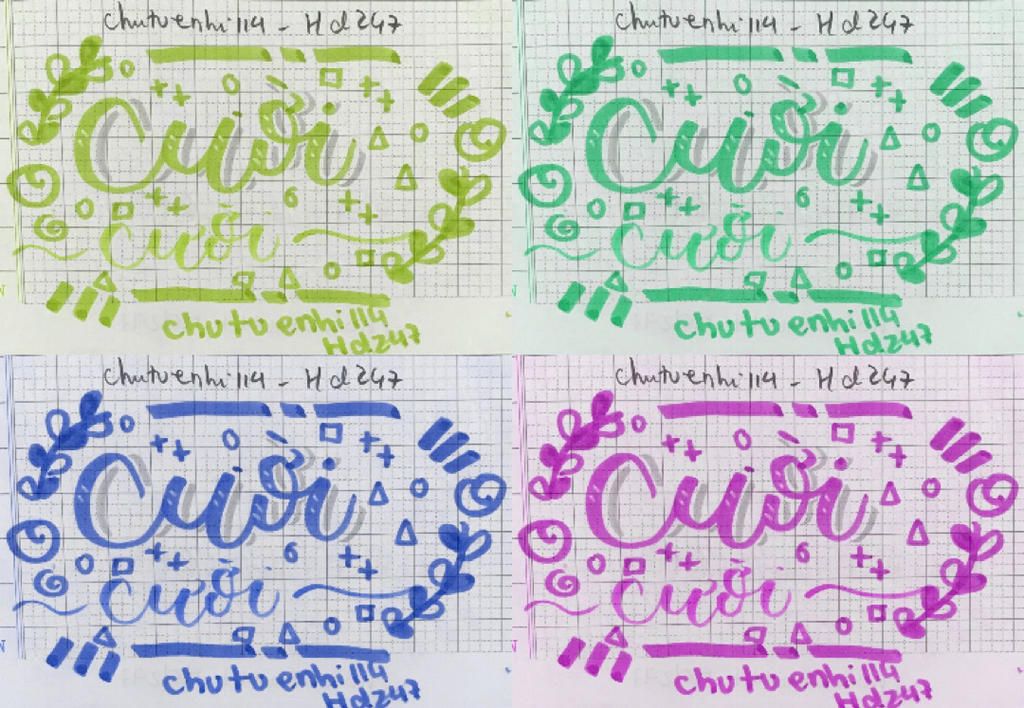 chutuenhi114 - Hd247
Cười
cười
chutuenhi114
Hd247
chutuenhi114 - Hd247
Cười
cười
chutuenhi114
Hd247
chutuenhi114 - Hd247
Cười
cười
chutuenhi114
Hd247
chutuenhi114 - Hd247
Cười
cười
chutuenhi114
Hd247